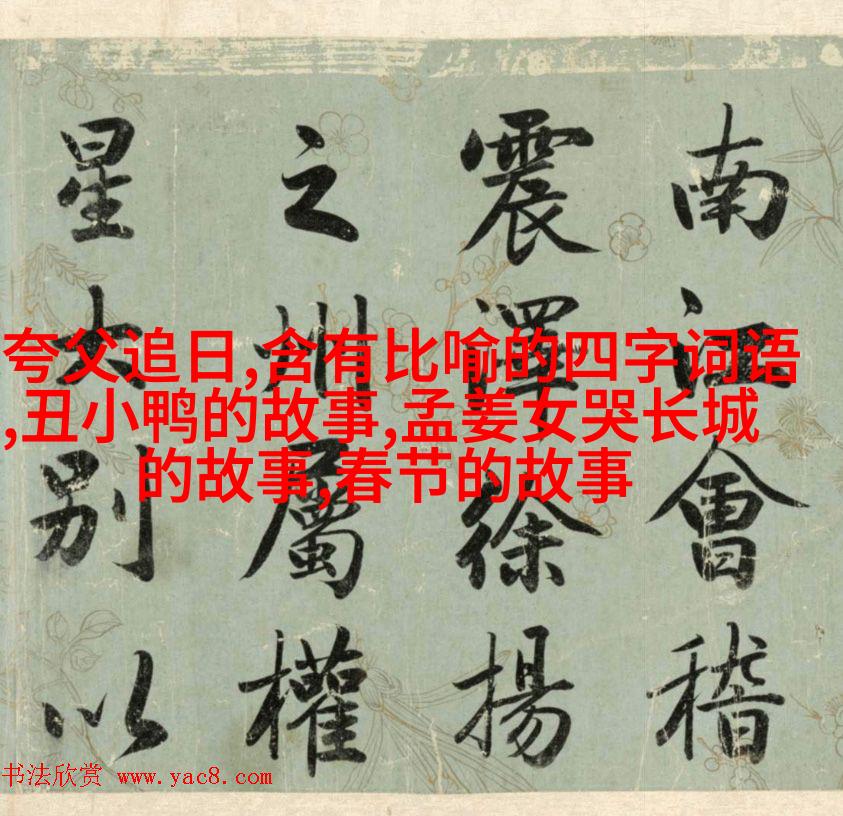 夸父追日,含有比喻的四字词语
,丑小鸭的故事,孟姜女哭长城
的故事,春节的故事
南江會稽
震澤徐揚
之州屬權
星土別以
书法欣赏 www.yac8.com